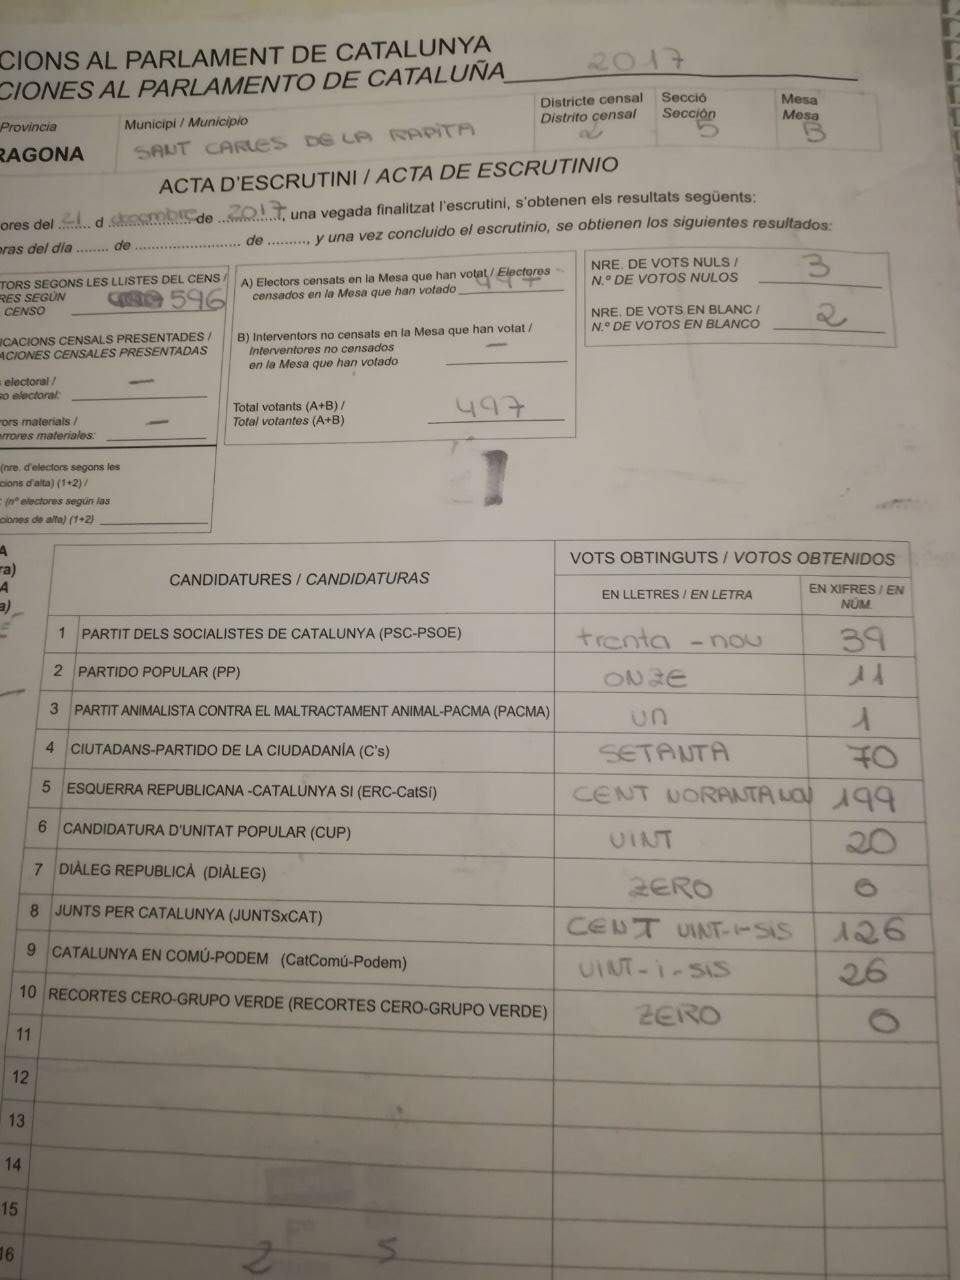 CIONS AL PARLAMENT DE CATALUNYA
CIONES AL PARLAMENTO DE CATALUÑA 2017
Provincia
RAGONA
Municipi / Municipio
SANT CARLES DE LA RAPITA
Districte censal
Distrito censal
2
Secció
Sección
5
Mesa
Mesa
B
ACTA D'ESCRUTINI / ACTA DE ESCRUTINIO
ores del 21 d desembre de 2017, una vegada finalitzat l'escrutini, s'obtenen els resultats següents:
oras del día ........ de ........................ de ........., y una vez concluido el escrutinio, se obtienen los siguientes resultados:
TORS SEGONS LES LLISTES DEL CENS /
RES SEGÚN
CENSO 596
ICACIONS CENSALS PRESENTADES /
ACIONES CENSALES PRESENTADAS
electoral /
so electoral: —
rors materials /
errores materiales: —
(nre. d'electors segons les
cions d'alta) (1+2) /
: (nº electores según las
ciones de alta) (1+2)
A) Electors censats en la Mesa que han votat / Electores
censados en la Mesa que han votado 497
B) Interventors no censats en la Mesa que han votat /
Interventores no censados
en la Mesa que han votado —
Total votants (A+B) /
Total votantes (A+B) 497
NRE. DE VOTS NULS /
N.º DE VOTOS NULOS 3
NRE. DE VOTS EN BLANC /
N.º DE VOTOS EN BLANCO 2
1
A
ra)
A
a)
CANDIDATURES / CANDIDATURAS
VOTS OBTINGUTS / VOTOS OBTENIDOS
EN LLETRES / EN LETRA
EN XIFRES / EN
NÚM.
1 PARTIT DELS SOCIALISTES DE CATALUNYA (PSC-PSOE) trenta - nou 39
2 PARTIDO POPULAR (PP) ONZE 11
3 PARTIT ANIMALISTA CONTRA EL MALTRACTAMENT ANIMAL-PACMA (PACMA) UN 1
4 CIUTADANS-PARTIDO DE LA CIUDADANÍA (C's) SETANTA 70
5 ESQUERRA REPUBLICANA -CATALUNYA SI (ERC-CatSí) CENT NORANTA NOU 199
6 CANDIDATURA D'UNITAT POPULAR (CUP) VINT 20
7 DIÀLEG REPUBLICÀ (DIÀLEG) ZERO 0
8 JUNTS PER CATALUNYA (JUNTSxCAT) CENT VINT-I-SIS 126
9 CATALUNYA EN COMÚ-PODEM (CatComú-Podem) VINT-i-SIS 26
10 RECORTES CERO-GRUPO VERDE (RECORTES CERO-GRUPO VERDE) ZERO 0
11
12
13
14
15
16
2 5